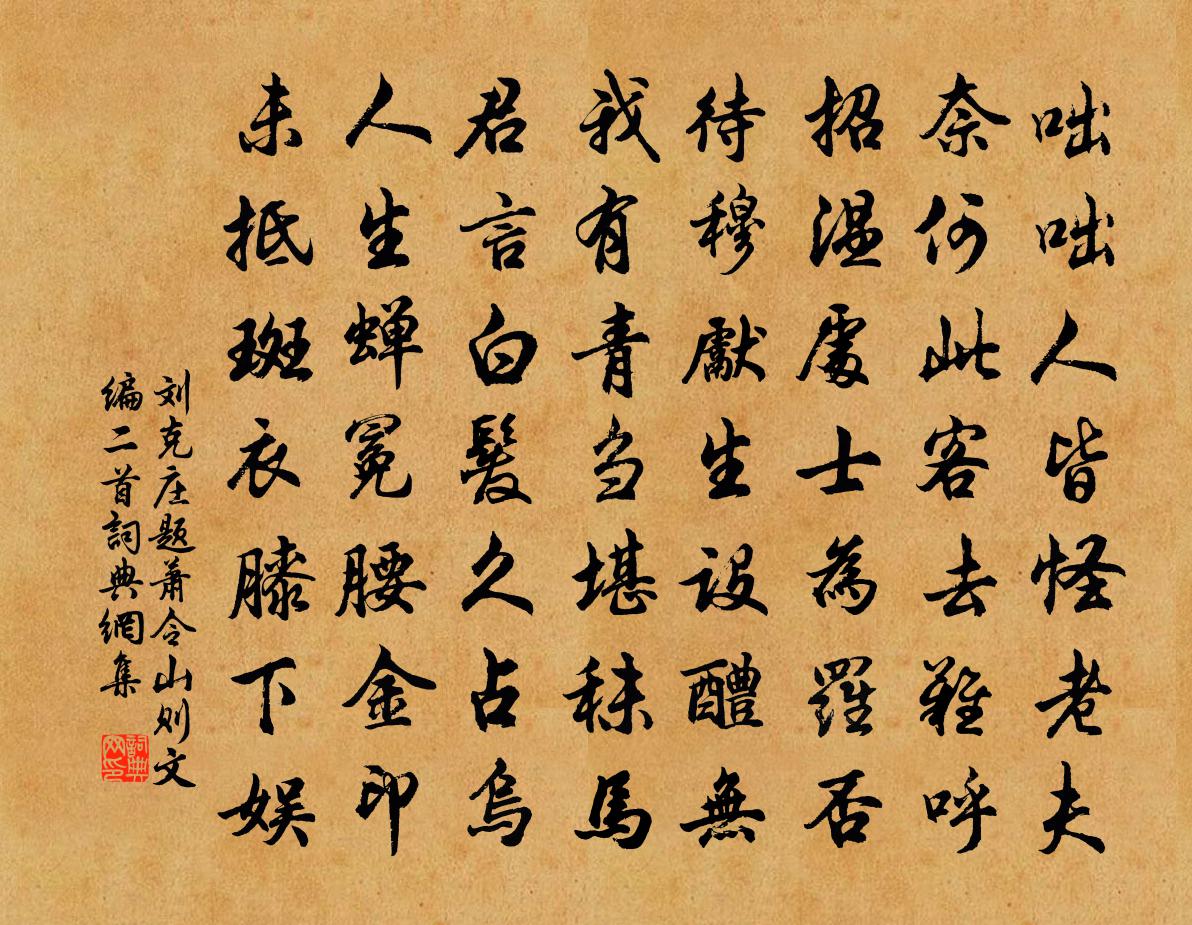 咄咄人皆怪老夫
奈何此客去难呼
招温處士為羅否
待穆獻生設醴無
我有青刍堪秣馬
君言白髮久占烏
人生蝉冕腰金印
未抵斑衣膝下娱
刘克庄题萧令山则文
编二首詞典網集
詞典网印